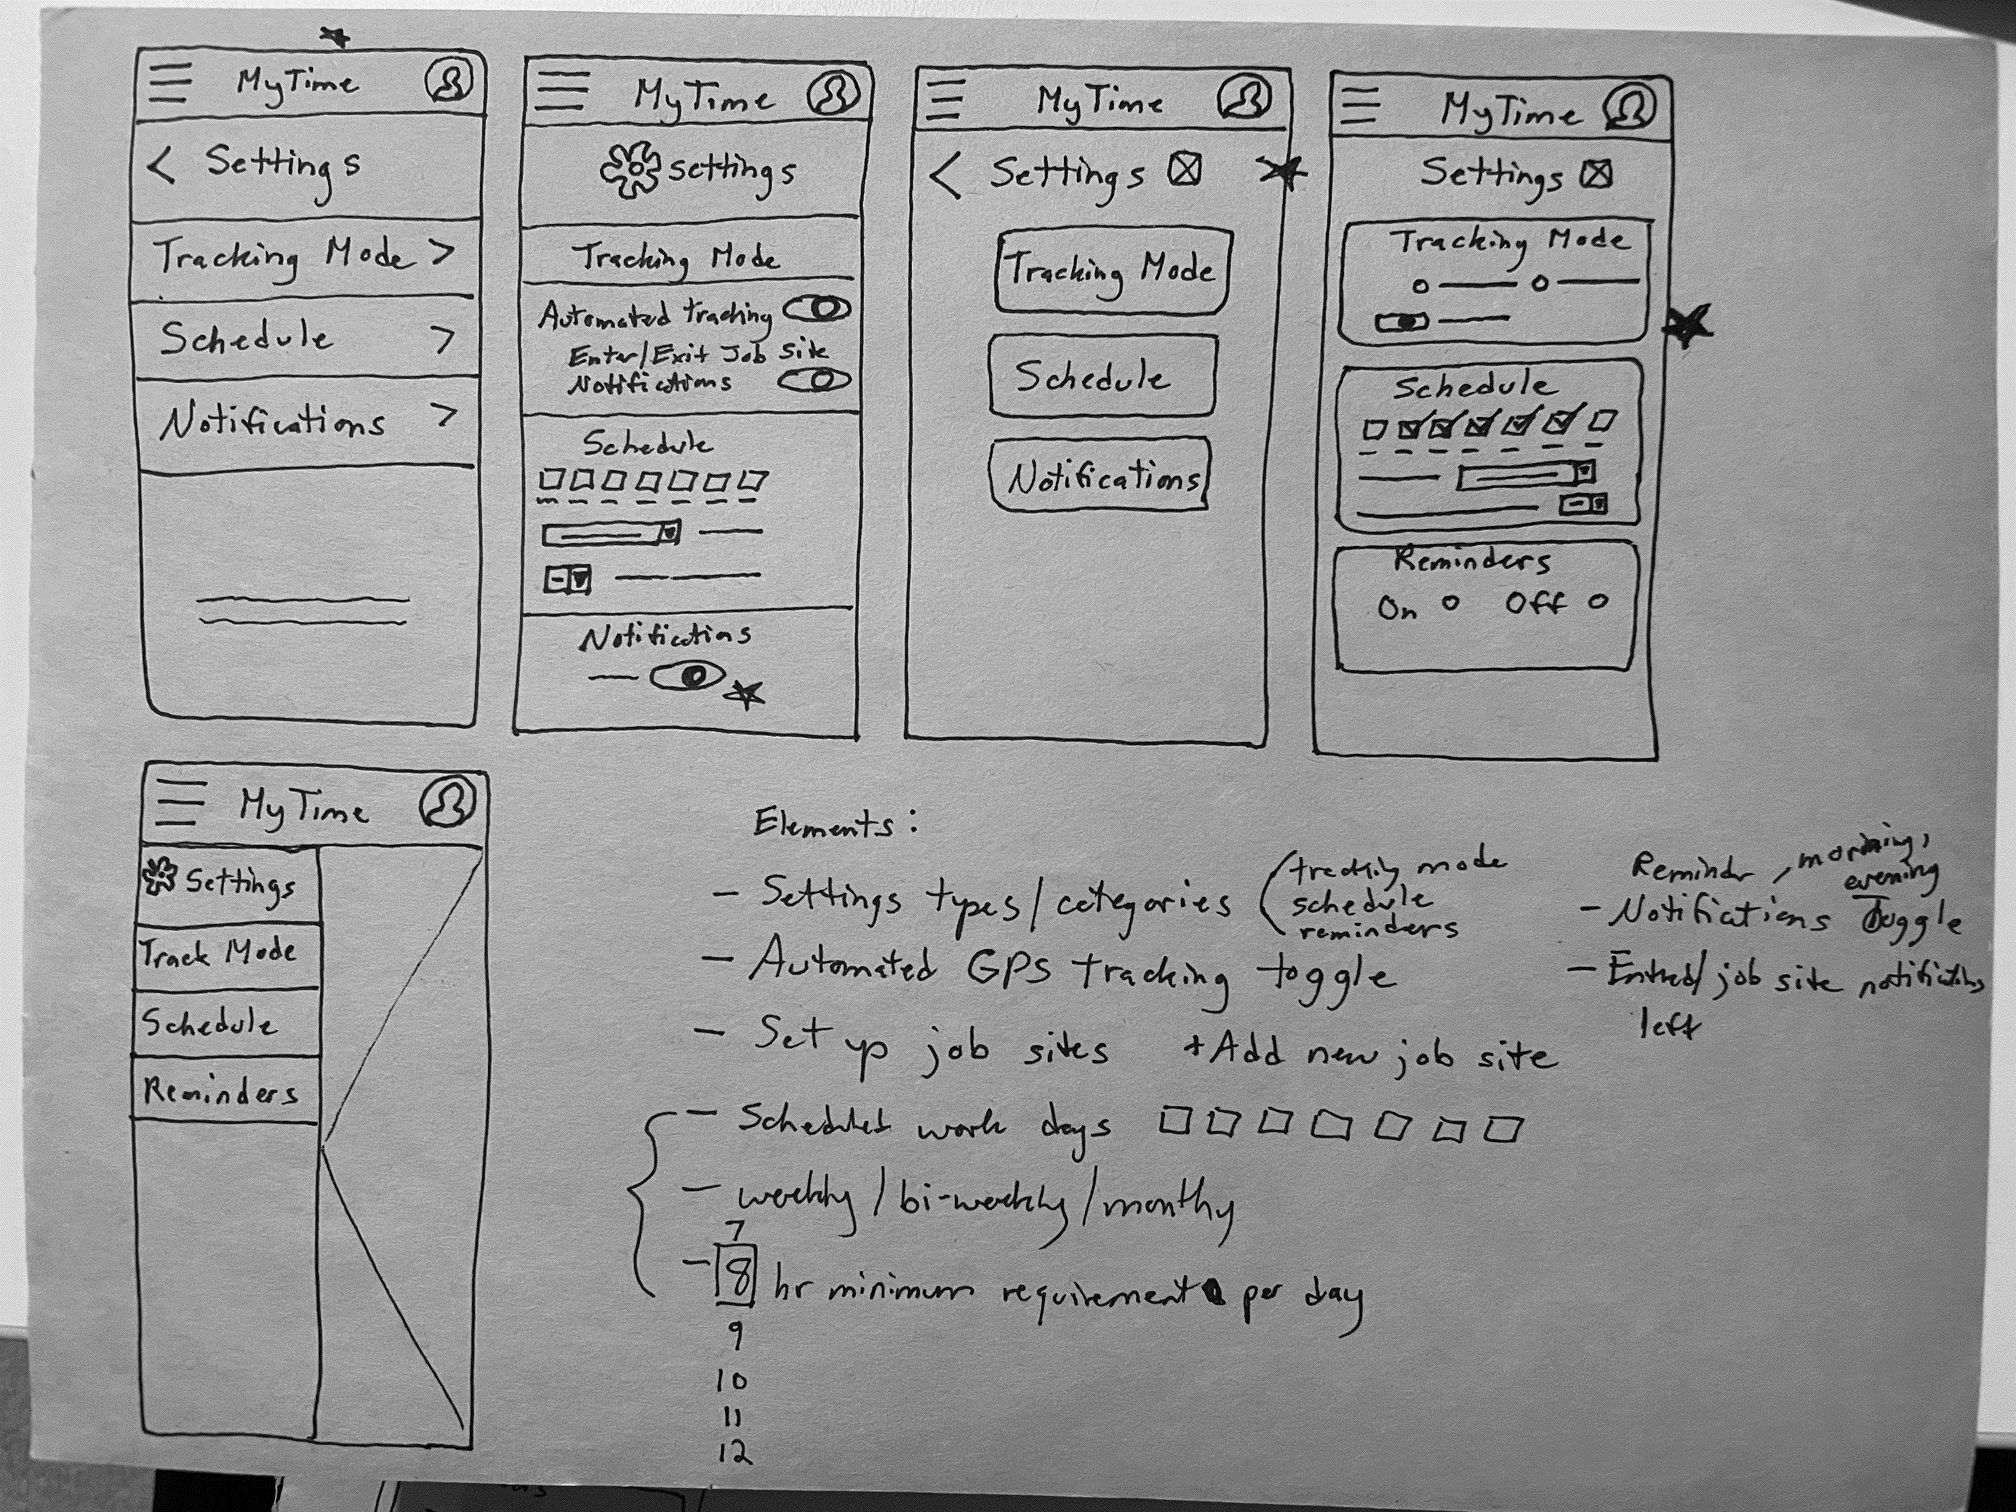 MyTime
< Settings
Tracking Mode >
Schedule >
Notifications >
MyTime
Settings
Tracking Mode
Automated tracking
Enter/Exit Job Site
Notifications
Schedule
Notifications
MyTime
< Settings
Tracking Mode
Schedule
Notifications
MyTime
Settings
Tracking Mode
Schedule
Reminders
On Off
MyTime
Settings
Track Mode
Schedule
Reminders
Elements:
- Settings types/categories (tracking mode
schedule
reminders
- Automated GPS tracking toggle
- Set up job sites +Add new job site
- Scheduled work days
- weekly/bi-weekly/monthy
7
- 8 hr minimum requirement per day
9
10
11
12
Reminder, morning,
evening
- Notifications Toggle
- Entred/job site notifications
left